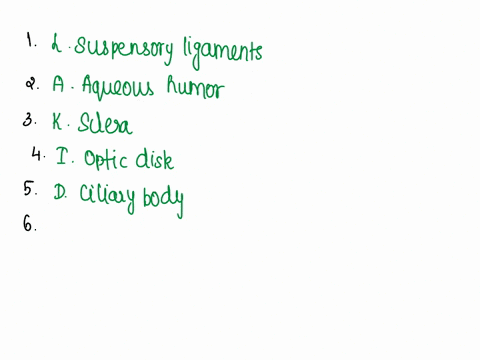 1. L. Suspensory ligaments
2. A. Aqueous humor
3. K. Sclera
4. I. Optic disk
5. D. Ciliary body
6.